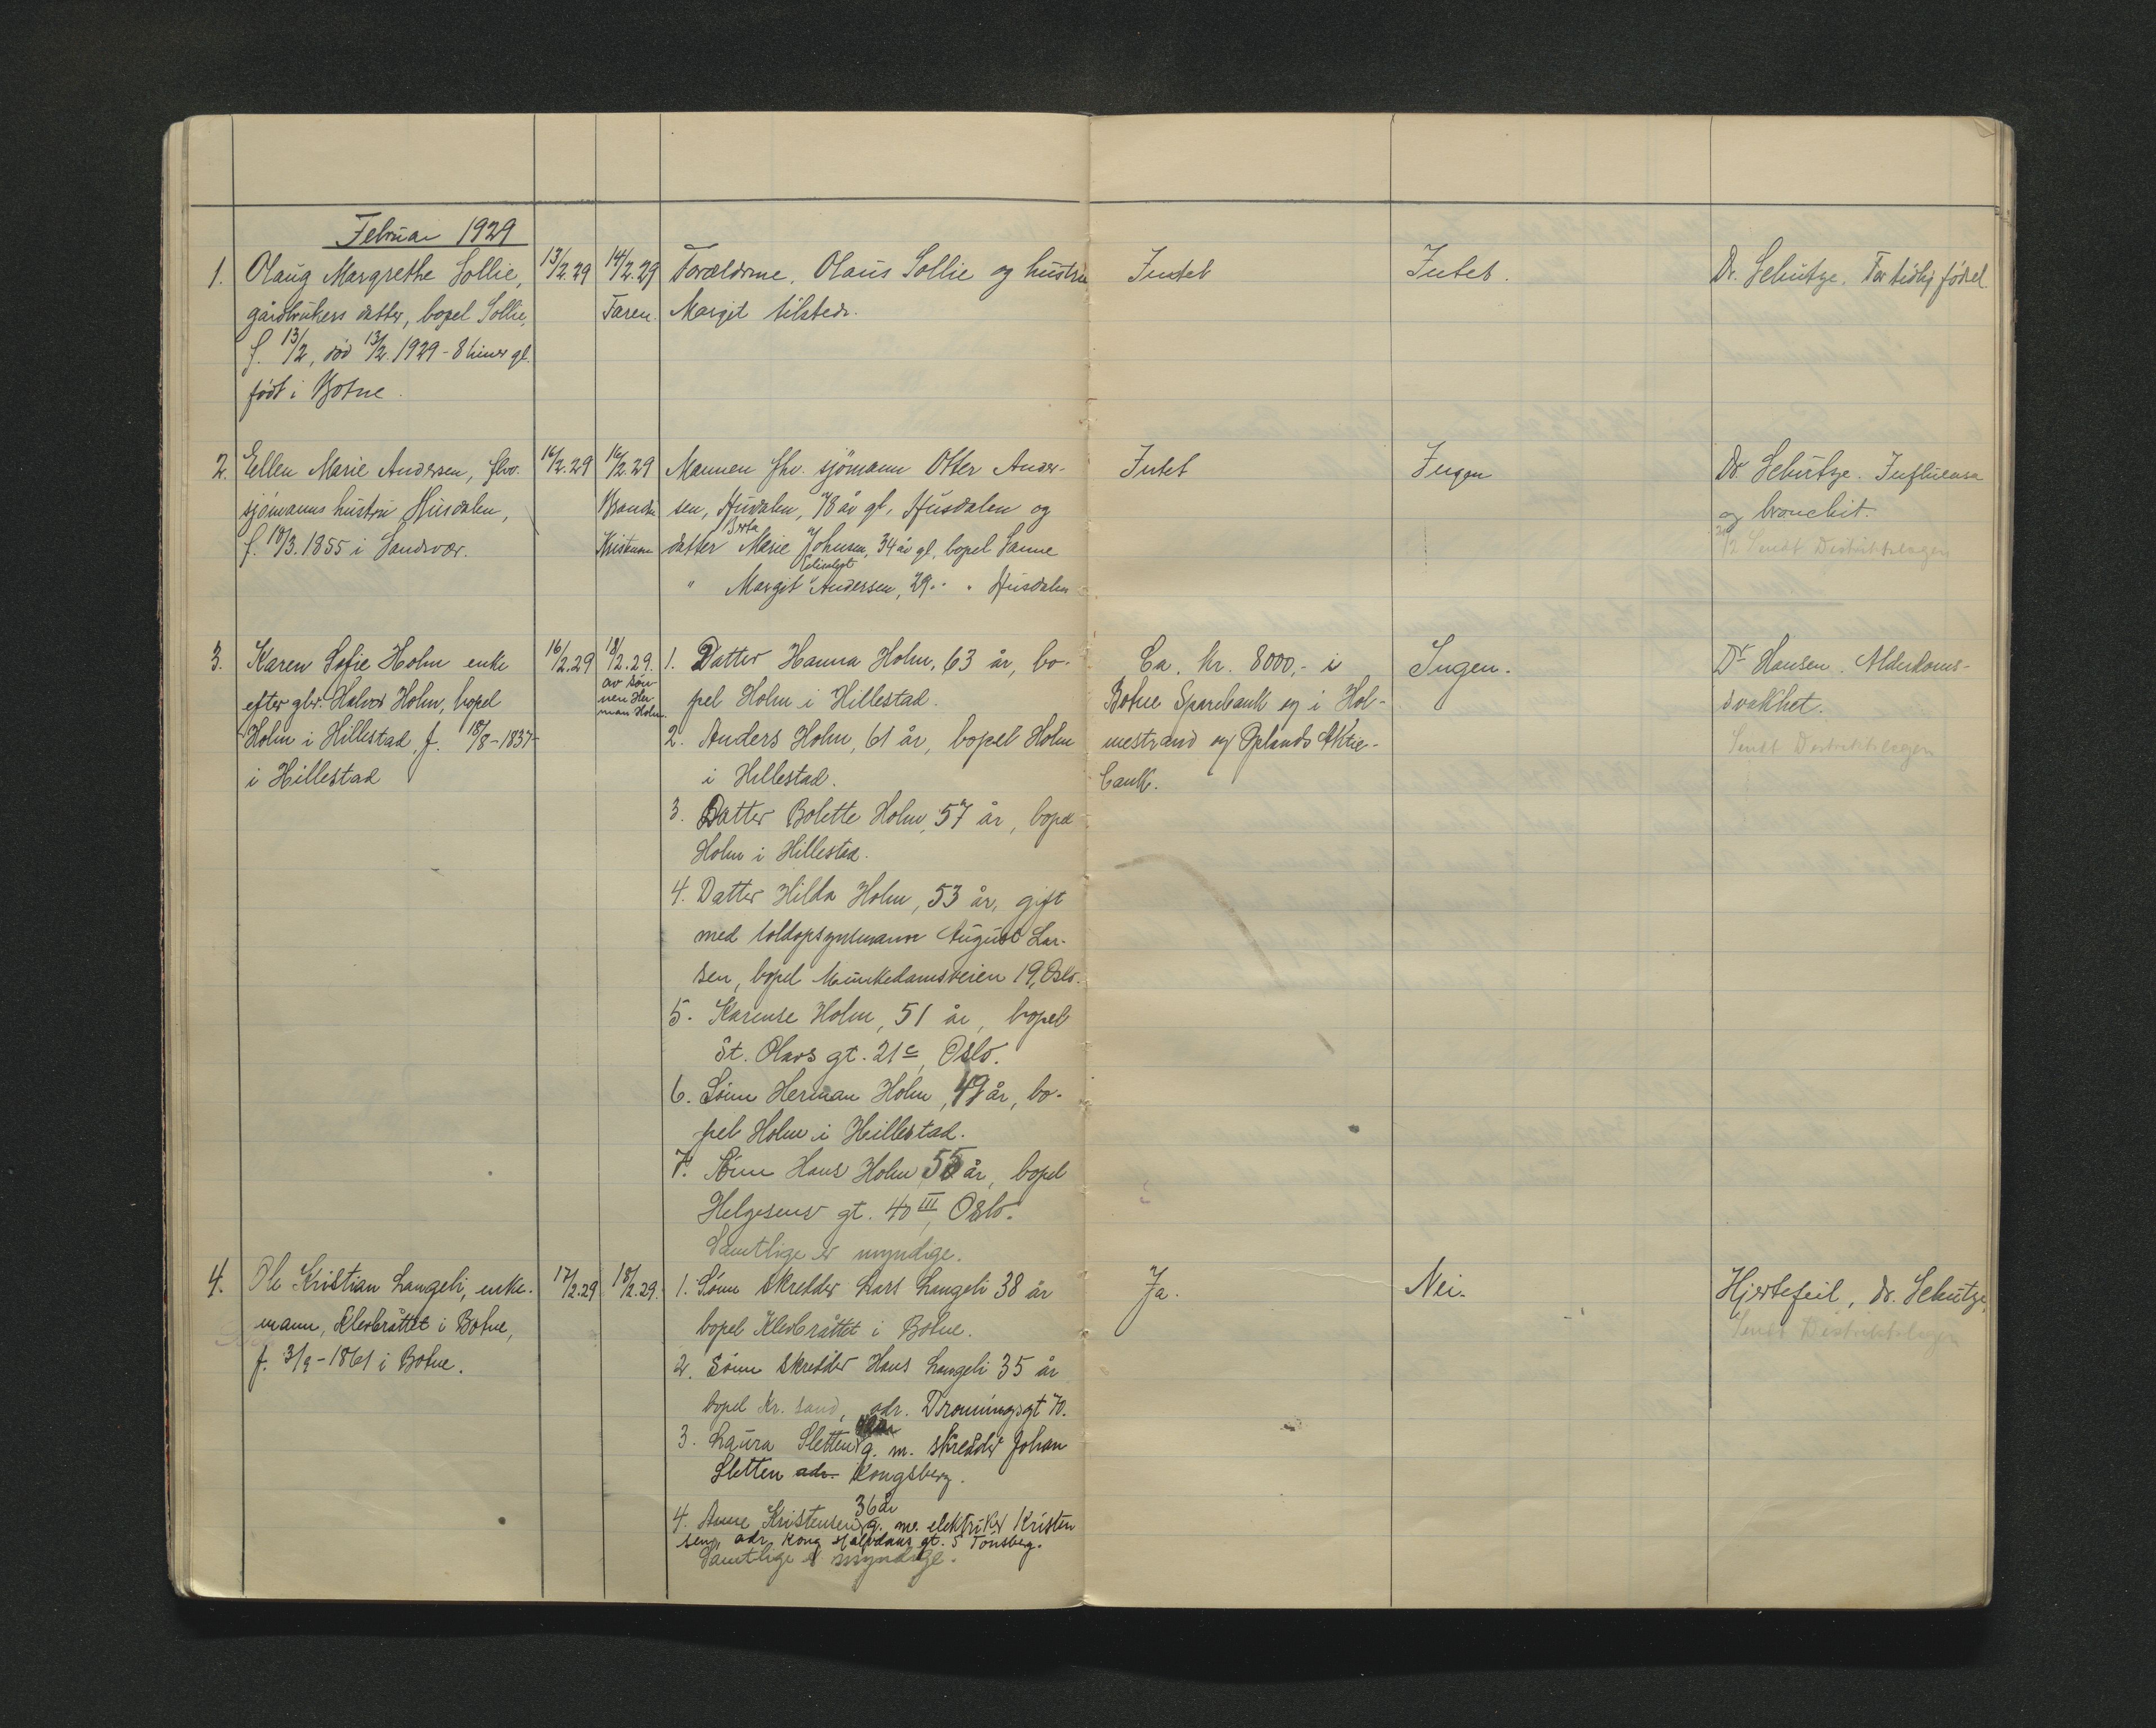 Februar 1929
1. Olaug Margrethe Sollie,
gårdbrukers datter, bopel Sollie,
f. 13/2, död 13/2. 1929 - 8 timer gl.
födt i Botne.
13/2.29
14/2.29
Faren.
Forældrene, Olaus Sollie og hustru
Margit tilstede.
Intet
Intet.
Dr. Schütze. For tidlig födsel
2. Ellen Marie Andersen, fhv.
sjömanns hustru Husdalen,
f. 18/3. 1855 i Sandsvær.
16/2.29
16/2.29
Kristensen
Mannen fhv. sjömann Otter Ander-
sen, Husdalen, 78 år gl, Husdalen og
Berta
datter Marie Johnsen, 34 år gl, bopel Sanne
" Margit Andersen, 29 " " Husdalen
Intet
Ingen
Dr. Schütze. Influensa
og bronchit.
Sendt Distriktslegen
3. Karen Sofie Holm enke
efter gbr. Halvor Holm, bopel
Holm i Hillestad, f. 18/8-1837-
i Hillestad
16/2.29
18/2.29.
av søn-
nen Her-
man Holm.
1. Datter Hanna Holm, 63 år, bo-
pel Holm i Hillestad.
2. Anders Holm, 61 år, bopel Holm
i Hillestad.
3. Datter Bolette Holm, 57 år, bopel
Holm i Hillestad.
4. Datter Hilda Holm, 53 år, gift
med toldopsynsmann August Lar-
sen, bopel Munkedamsveien 19, Oslo.
5. Karense Holm, 51 år, bopel
St. Olavs gt. 21c, Oslo.
6. Sönn Herman Holm, 49 år, bo-
pel Holm i Hillestad.
7. Sönn Hans Holm 55 år, bopel
Helgesens gt. 40 III, Oslo.
Samtlige er myndige.
Ca. kr. 8000,- i
Botne Sparebank og i Hol-
mestrand og Oplands Aktie-
bank.
Ingen.
Dr Hansen. Alderdoms-
svakhet.
Sendt Distriktslegen
4. Ole Kristian Langeli, enke-
mann, Klevbråttet i Botne,
f. 3/9-1861 i Botne.
17/2.29
18/2.29.
1. Sönn skredder Lars Langeli 38 år
bopel Klevbråttet i Botne.
2. Sönn skredder Hans Langeli 35 år
bopel Kr. sand, adr. Dronningsgt 70.
3. Laura Sletten g. m. skredder Johan
Sletten adr. Kongsberg.
36 år
4. Anne Kristensen g. m. elektriker Kristen
sen, adr. Kong Halvdans gt. 5 Tönsberg.
Samtlige er myndige.
Ja.
Nei.
Hjertefeil, Dr. Schütze,
Sendt Distriktslegen